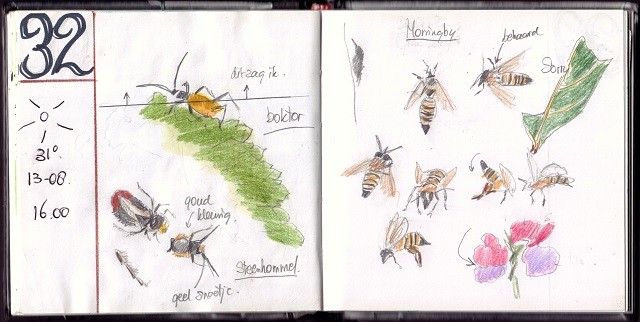 32
31°
13-08.
16.00
dit zag ik.
boktor
goud
kleurig.
Steenhommel.
geel snoetje.
Honingby
behaard
Sorry